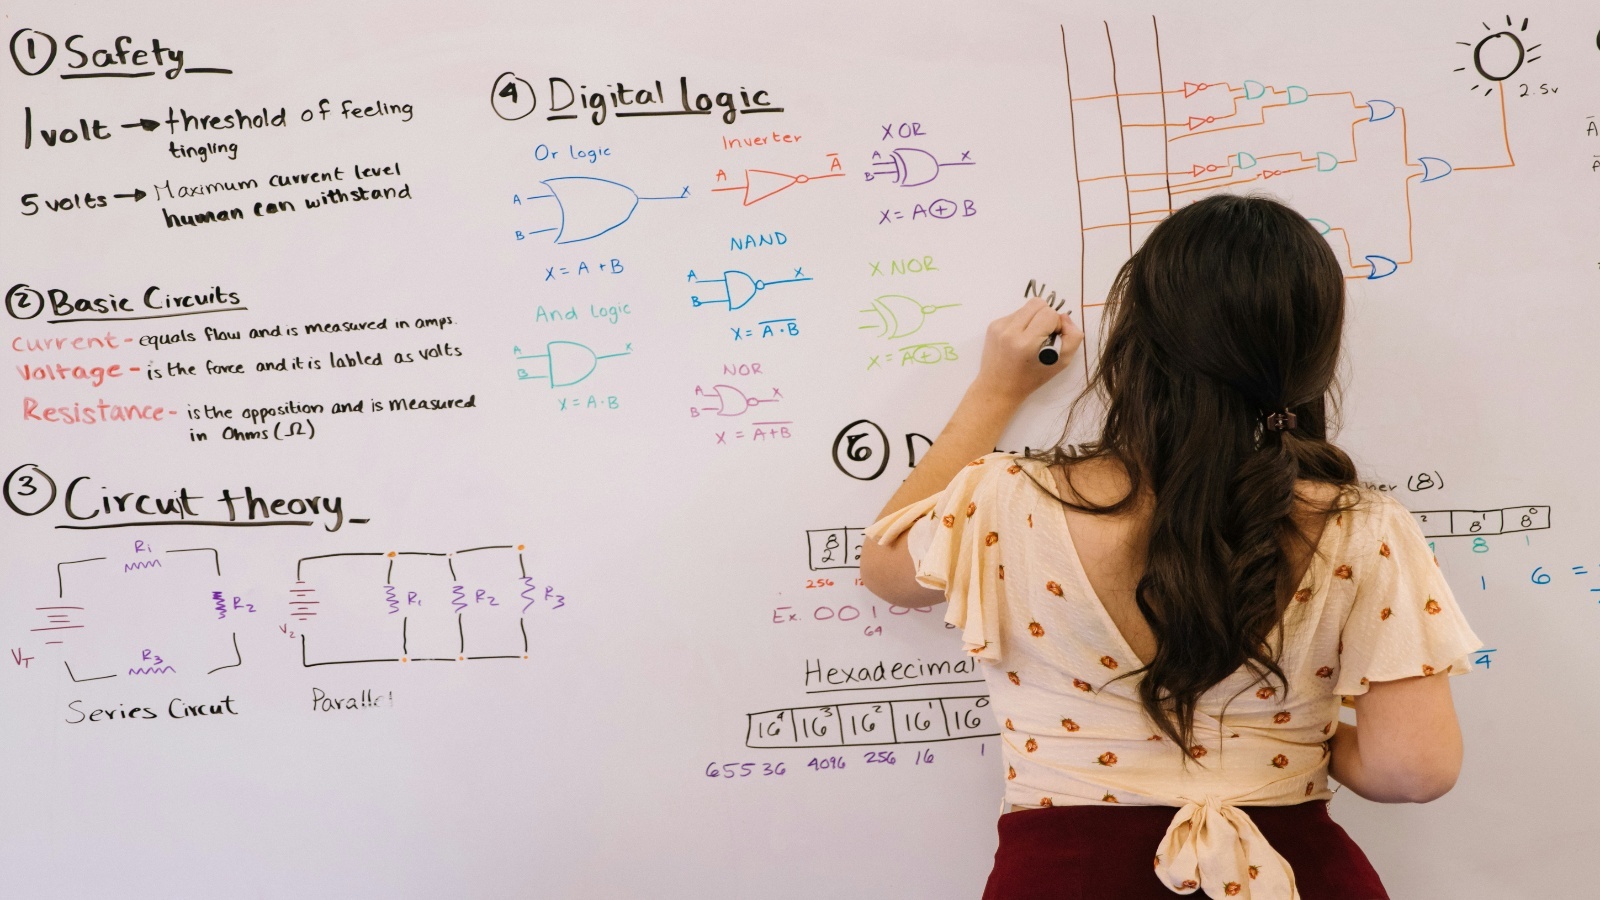 ① Safety
1 volt → threshold of feeling
tingling
5 volts → Maximum current level
human can withstand
② Basic Circuits
Current - equals flow and is measured in amps.
Voltage - is the force and it is labled as volts
Resistance - is the opposition and is measured
in Ohms (Ω)
③ Circut theory
R₁
R₂
R₃
V_T
Series Circut
V₂
R₁
R₂
R₃
Parallel
④ Digital logic
Or logic
A
B
X
X = A + B
And logic
A
B
X
X = A·B
Inverter
A
A̅
NAND
A
B
X
X = \overline{A·B}
NOR
A
B
X
X = \overline{A+B}
XOR
A
B
X
X = A ⊕ B
X NOR
X = \overline{A ⊕ B}
2.5v
A̅
(8)
8¹ 8⁰
8 1
1 6 =
4
2⁸
256
Ex. 001
64
Hexadecimal
16⁴ 16³ 16² 16¹ 16⁰
65536 4096 256 16 1